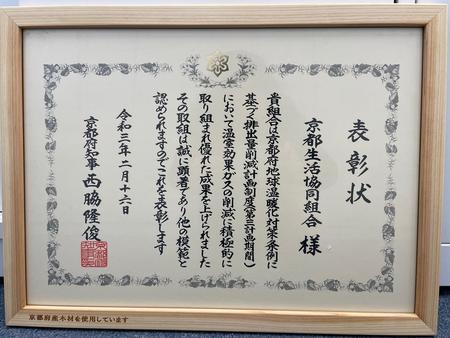 表彰状
京都生活協同組合 様
貴組合は京都府地球温暖化対策条例に
基づく排出量削減計画制度(第三計画期間)
において温室効果ガスの削減に積極的に
取り組まれ優れた成果を上げられました
その取組は誠に顕著であり他の模範と
認められますのでこれを表彰します
令和三年二月十六日
京都府知事 西脇隆俊
京都府産木材を使用しています